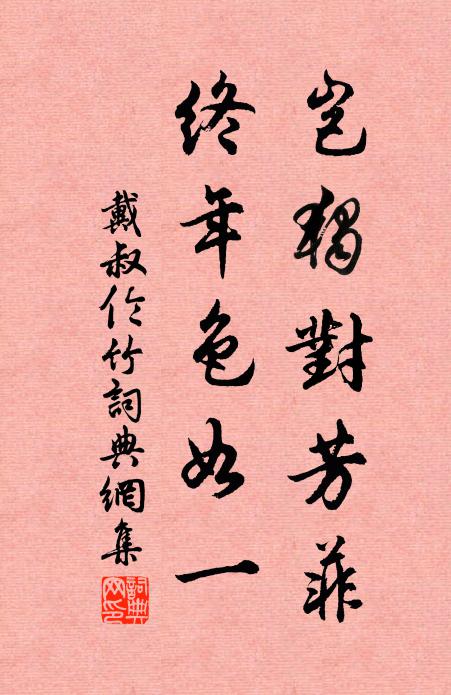 豈獨對芳菲
終年色如一
戴叔伦竹詞典網集
詞典网印